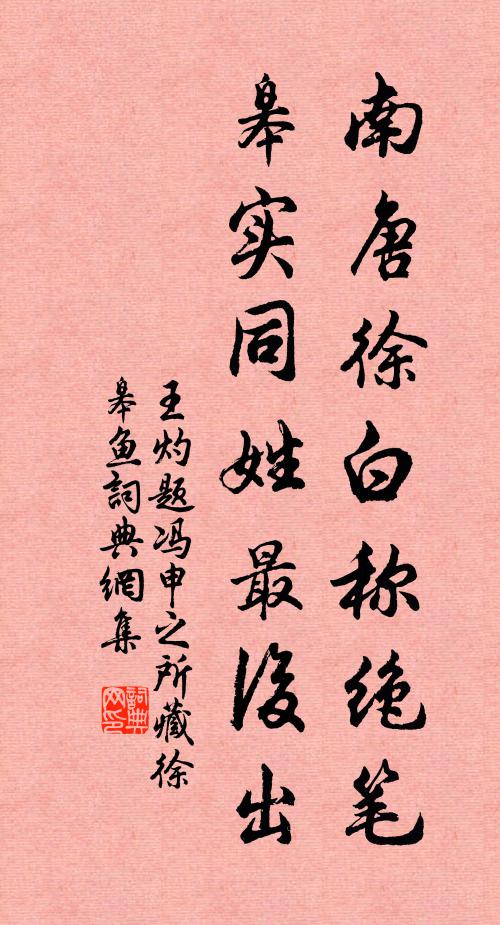 南唐徐白称绝笔
皋实同姓最後出
王灼题冯申之所藏徐
皋鱼詞典網集
詞典网印